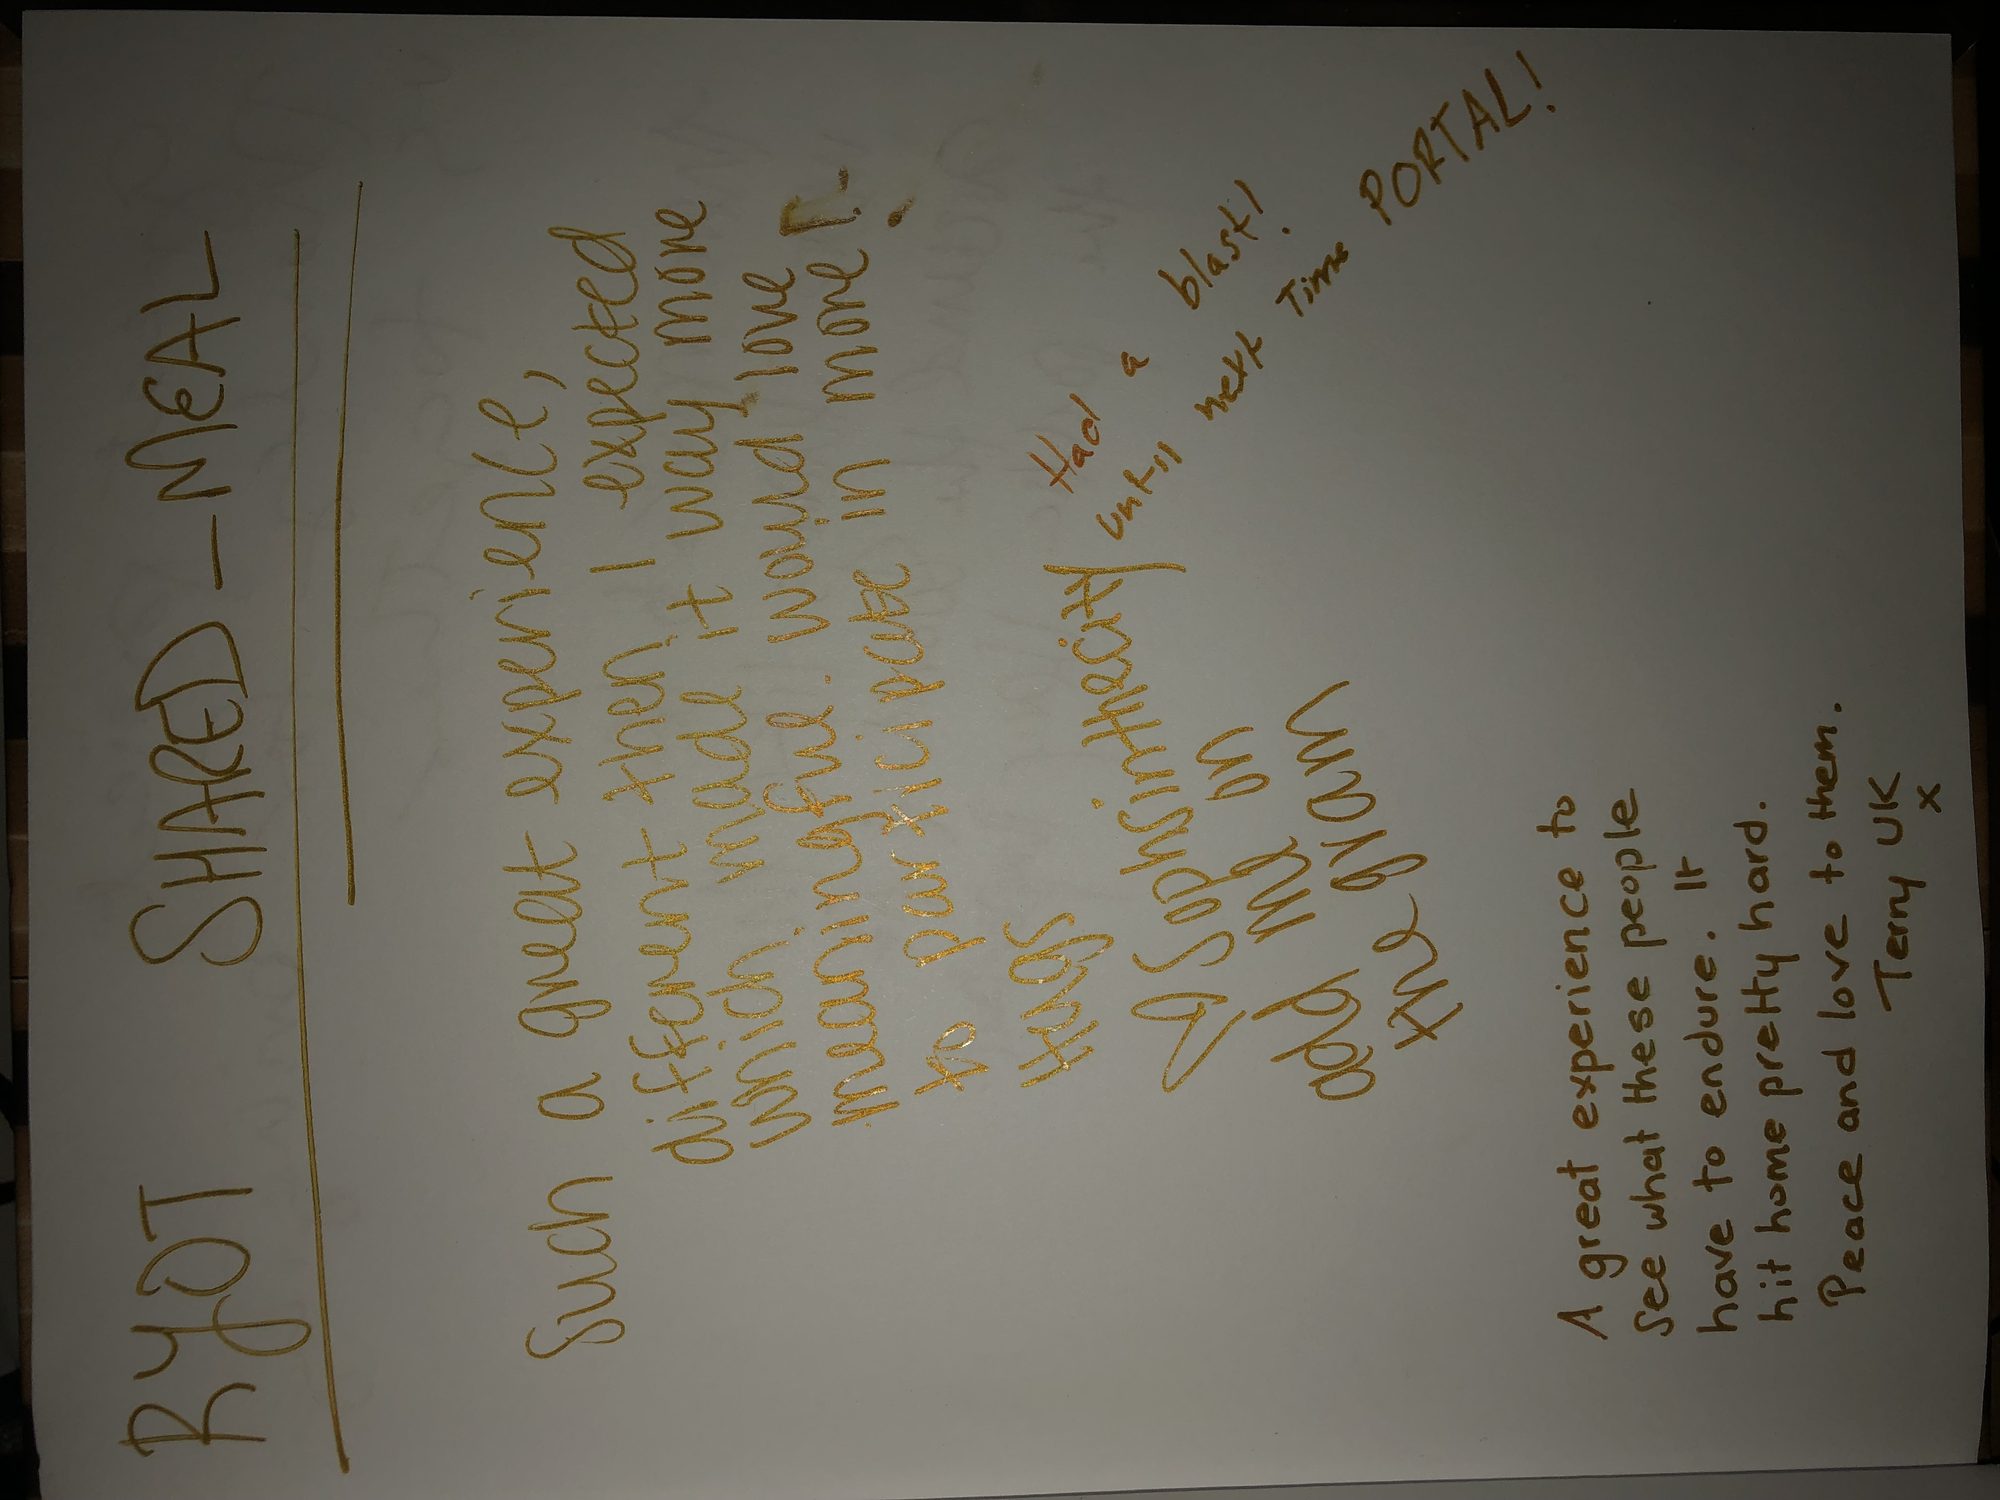 RYOT SHARED-MEAL
Such a great experience,
different then I expected
which made it way more
meaningful. I would love
to participate in more!
Hugs
sophsinthecity
add me on
the gram
Had a blast!
until next Time PORTAL!
A great experience to
see what these people
have to endure. It
hit home pretty hard.
Peace and love to them.
Terry UK
x